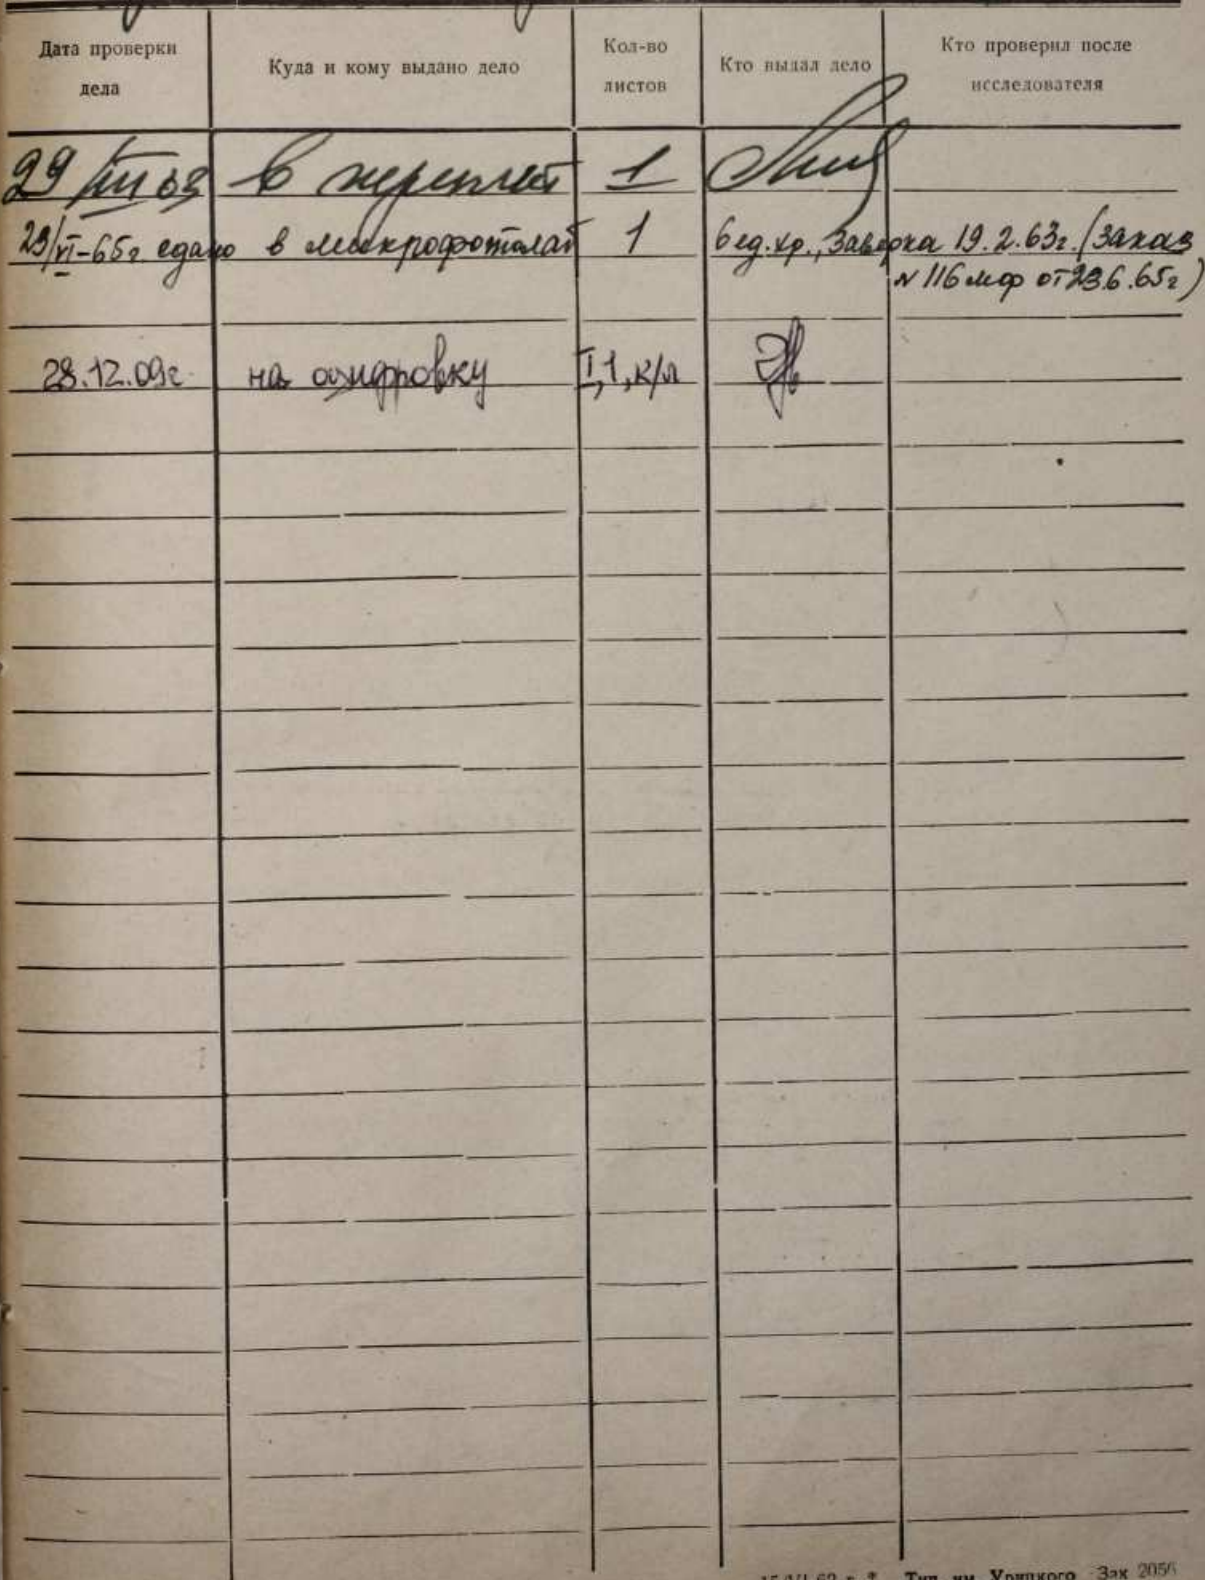 Дата проверки дела
Куда и кому выдано дело
Кол-во листов
Кто выдал дело
Кто проверил после исследователя
29/III 63 в переплет 1
23/VI-65г сдано в микрофотолаб 1 6 ед.хр., Заверка 19.2.63г. (Заказ
N 116 мф от 23.6.65г)
28.12.09г. на оцифровку I, 1, к/л
Тип. им. Урицкого Зак 2056